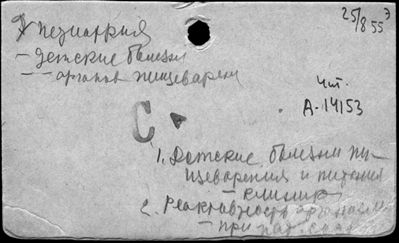 Педиатрия
25/8 55 э
- Детские болезни
-- органов пищеварен
Чит.
А-14153
С
1. Детские болезни пи-
щеварения и питания
- клиник
2. Реактивность организм
- при пат. сост